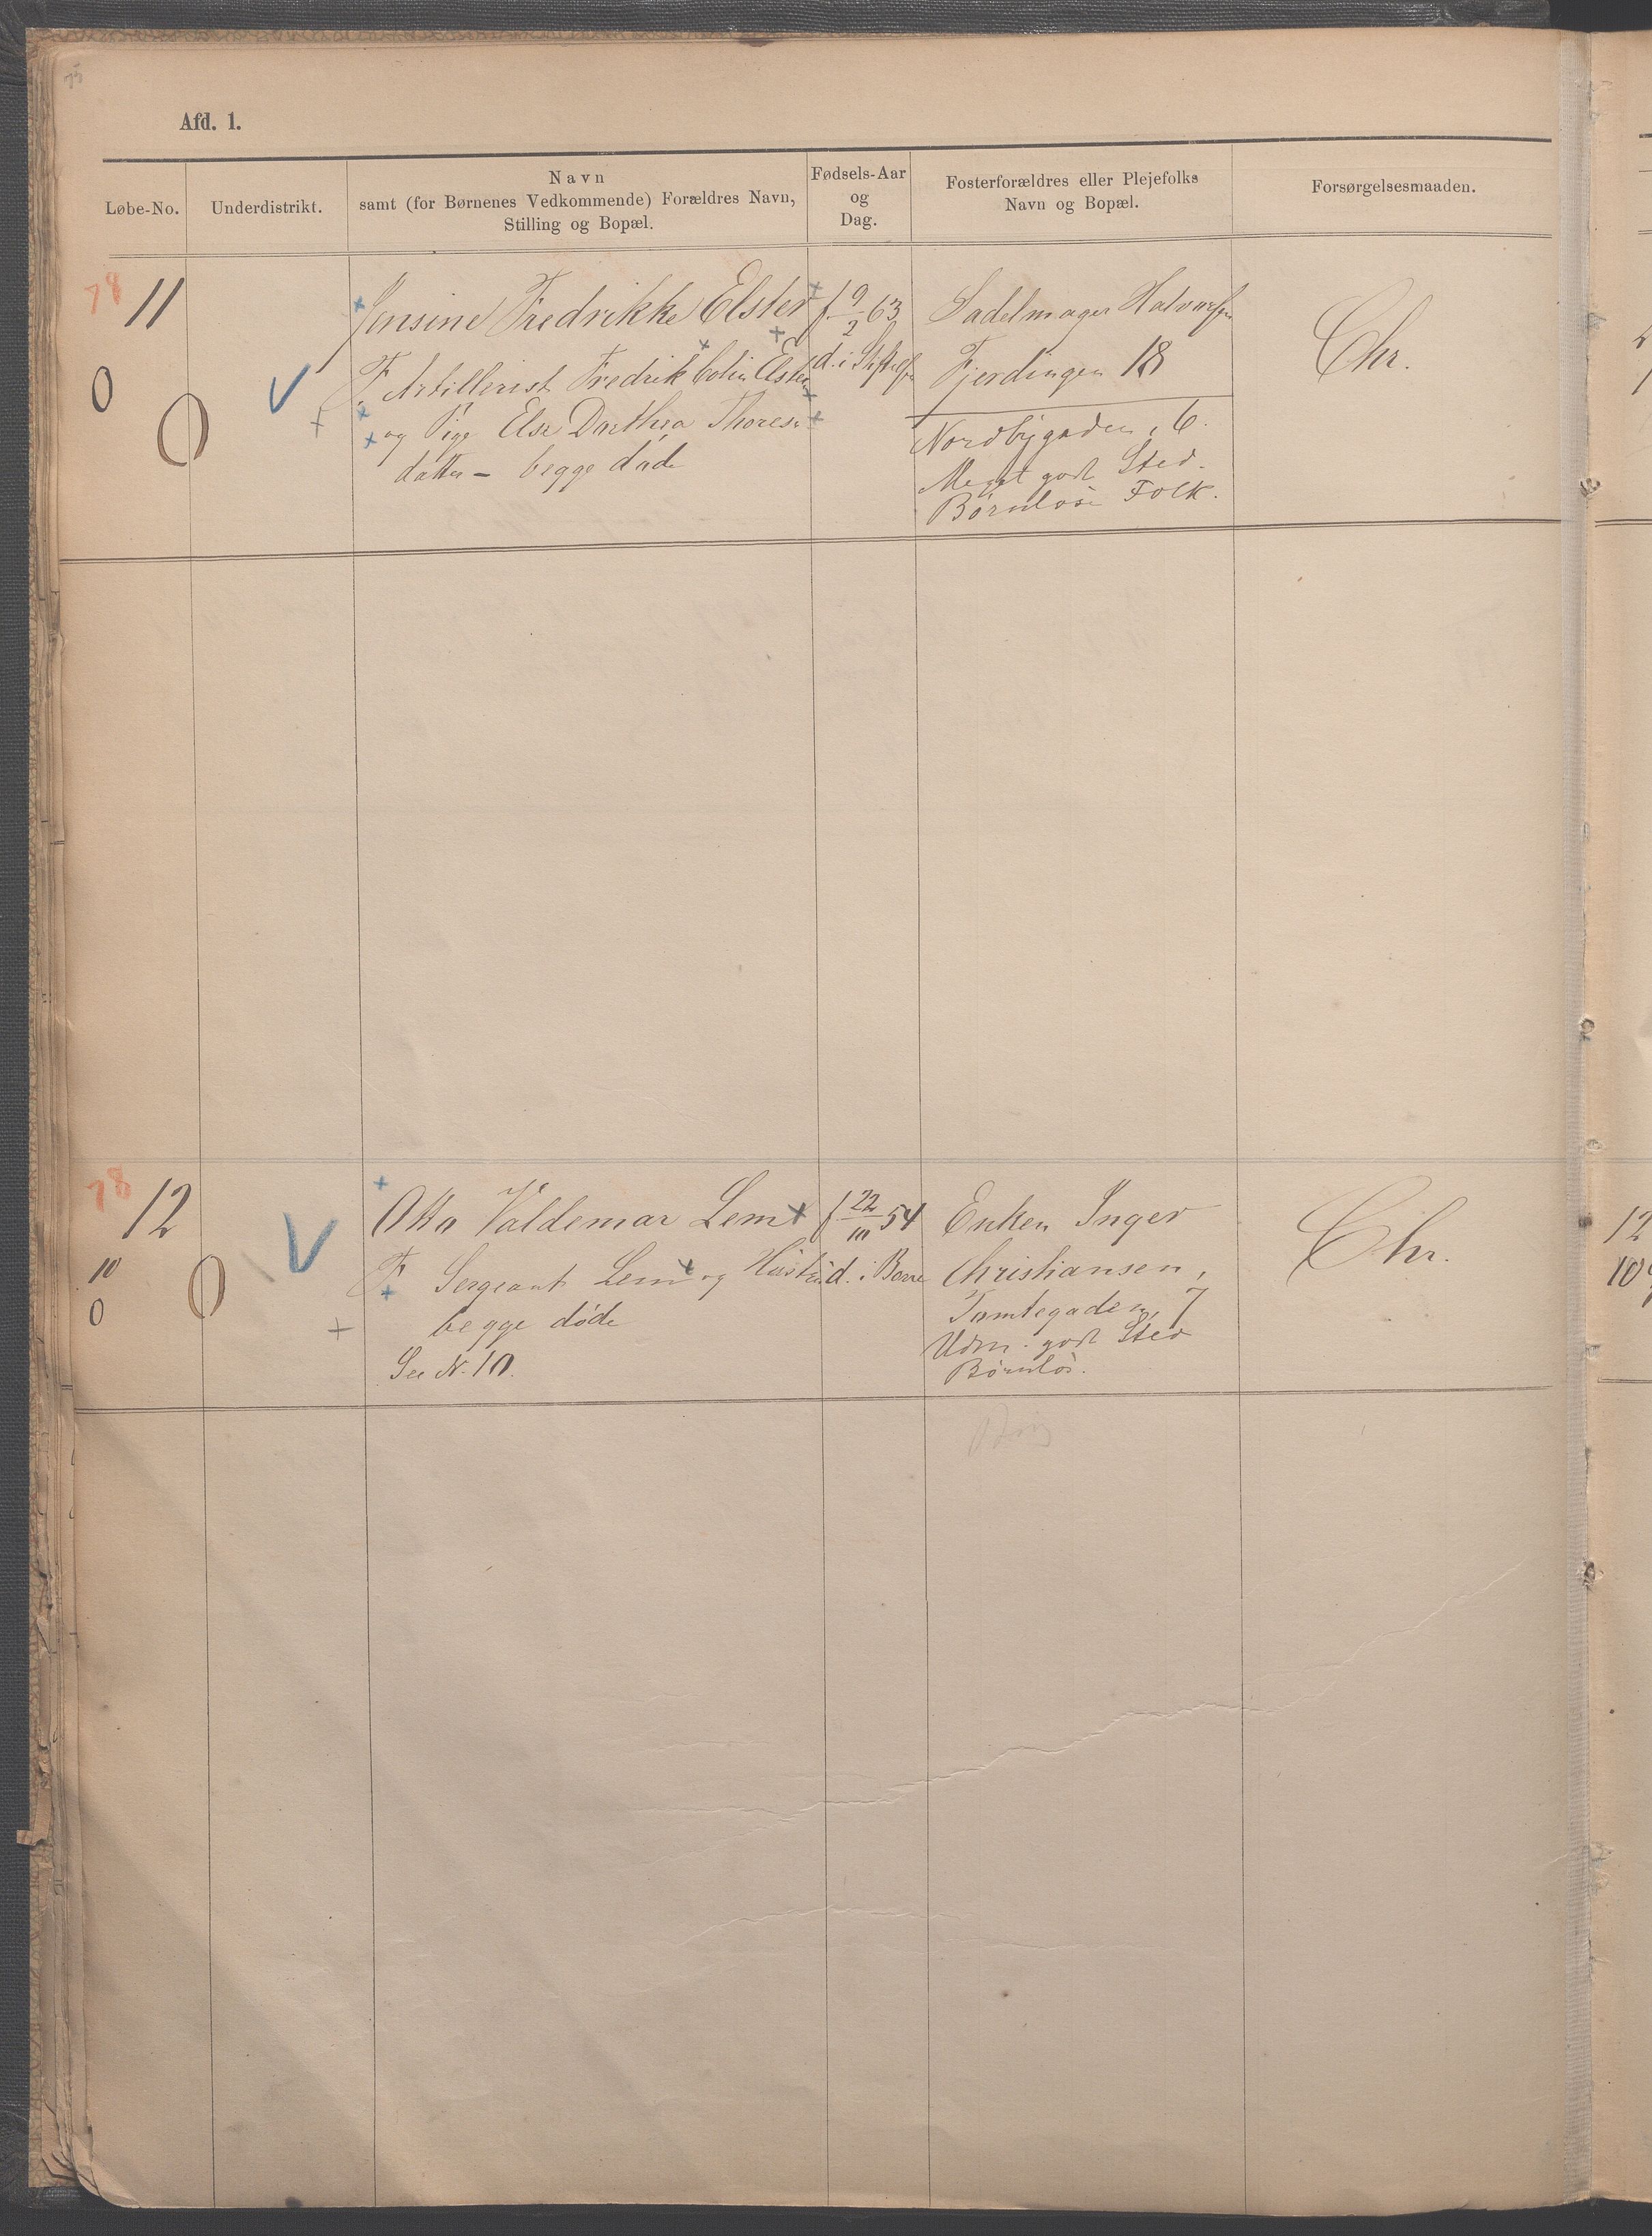 75
Afd. 1.
Løbe-No.
Underdistrikt.
Navn
samt (for Børnenes Vedkommende) Forældres Navn,
Stilling og Bopæl.
Fødsels-Aar
og
Dag.
Fosterforældres eller Plejefolks
Navn og Bopæl.
Forsørgelsesmaaden.
78 11
0
0
V
Jensine Fredrikke Elster
F. Artillerist Fredrik Colin Elster
og Pige Else Dorthea Thores-
datter - begge døde
f. 9/2 63
d. i Stiftelsen
Sadelmager Halvorsen
Fjerdingen 18
Nordbygaden, 6.
Meget godt Sted.
Børnløse Folk.
Chr.
78 12
10
0
0
V
Otto Valdemar Lem
F Sergeant Lem og Hustru
begge døde
See N. 10.
f 22/10 54
d. i
Enken Inger
Christiansen,
Tomtegaden, 7
Udm. godt Sted
Børnløs.
Chr.
12
10